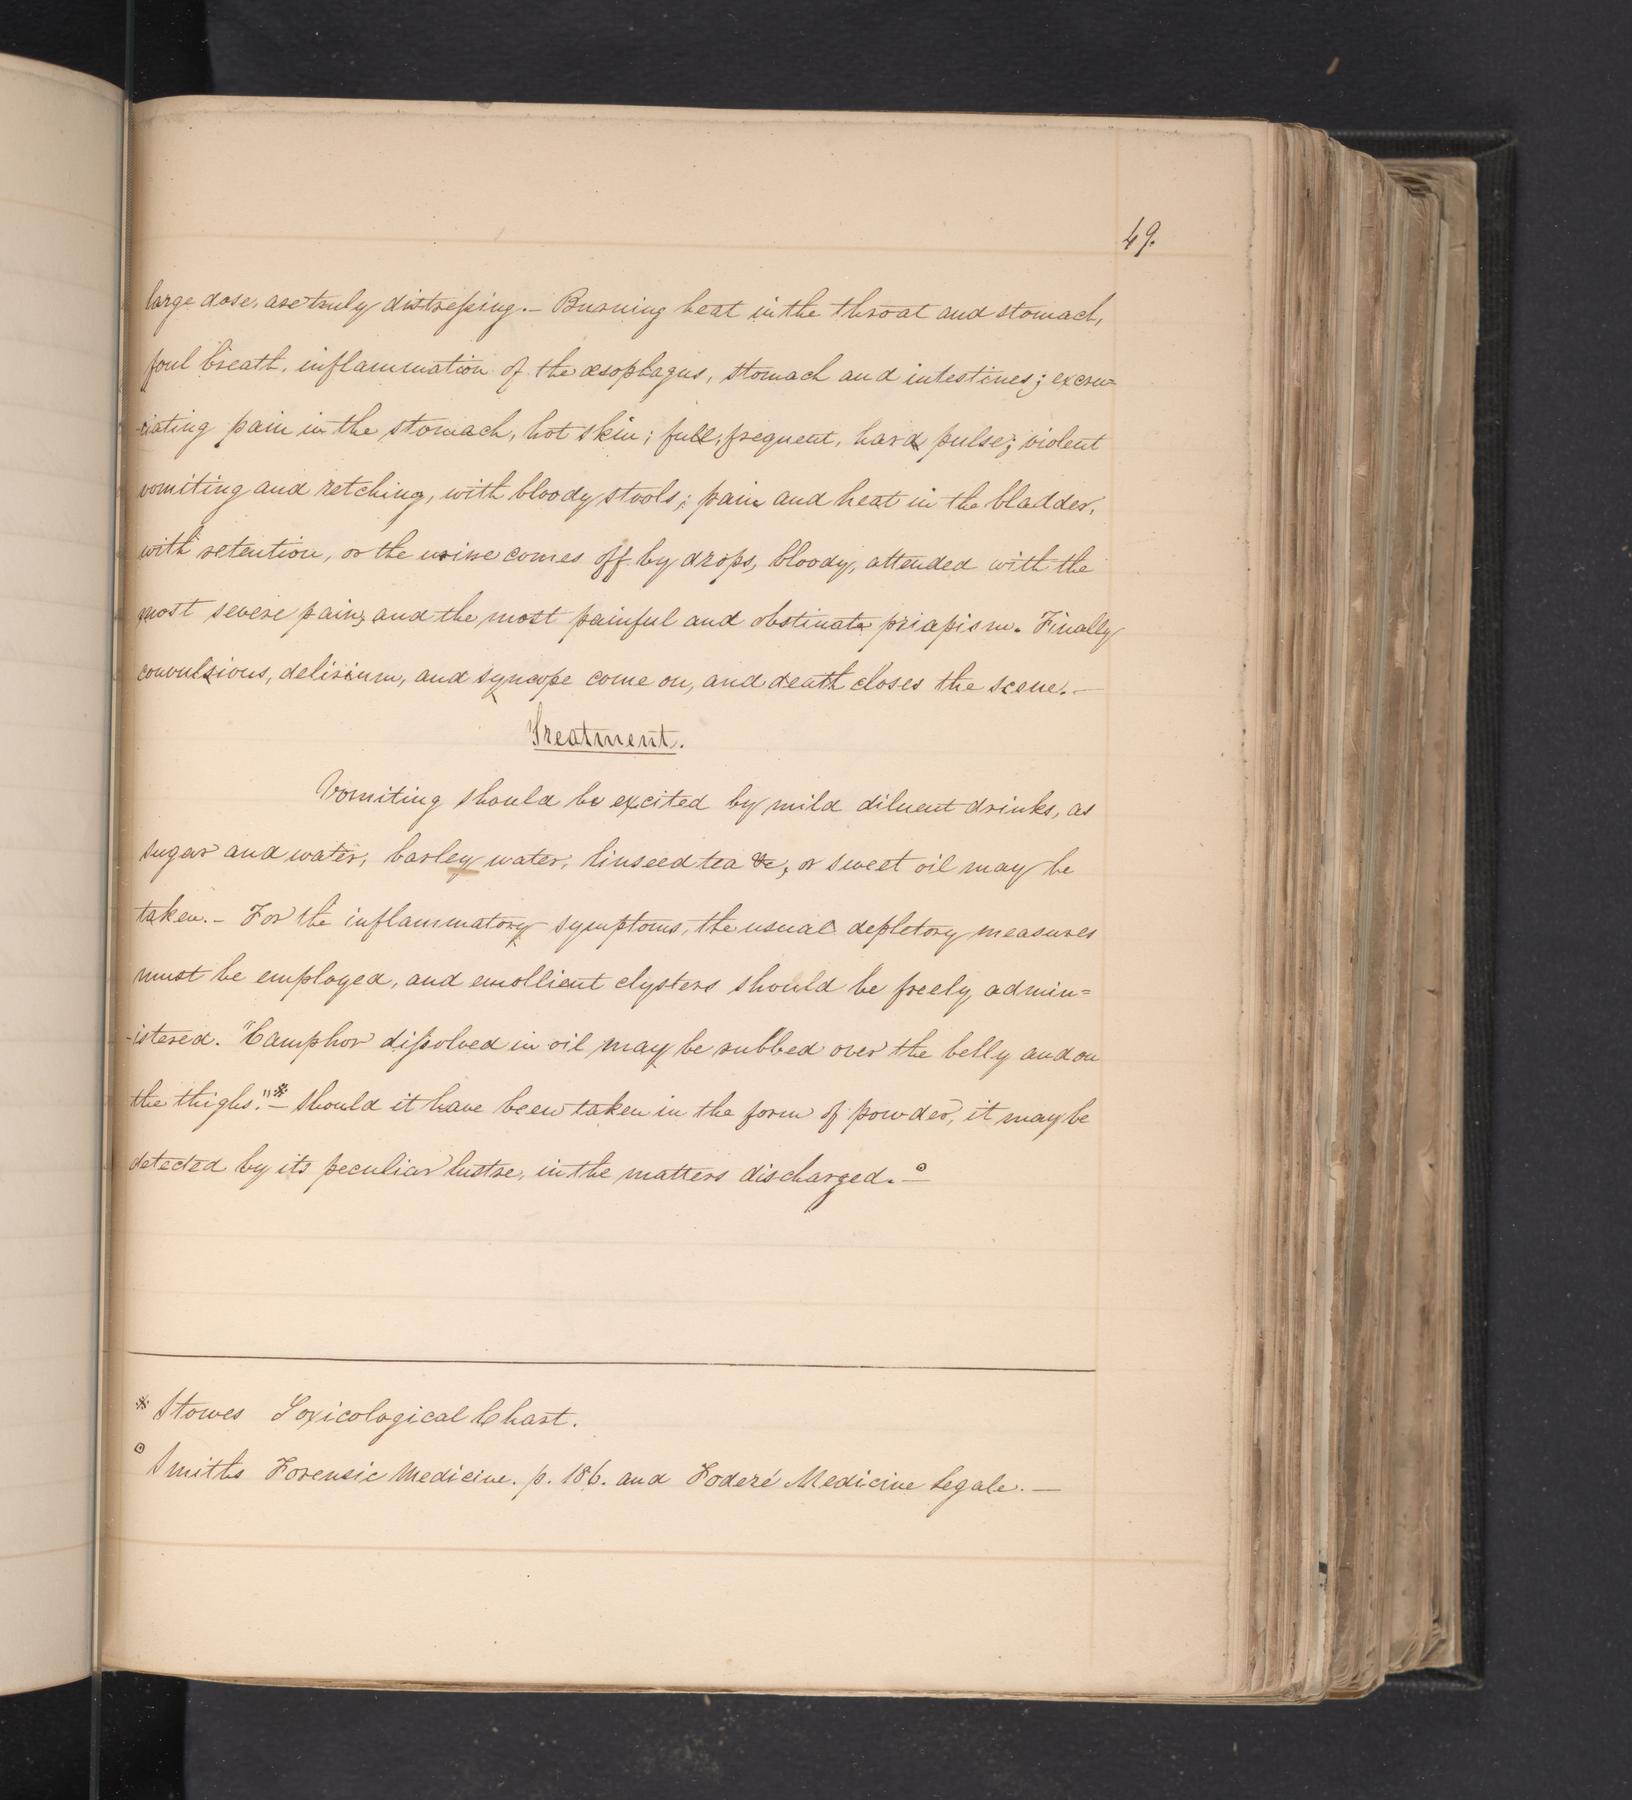 49.
large dose, are truly distressing.— Burning heat in the throat and stomach,
foul breath, inflammation of the œsophagus, stomach and intestines; excru=
-ciating pain in the stomach, hot skin; full, frequent, hard pulse; violent
vomiting and retching, with bloody stools; pain and heat in the bladder,
with retention, or the urine comes off by drops, bloody, attended with the
most severe pain, and the most painful and obstinate priapism. Finally
convulsions, delirium, and syncope come on, and death closes the scene.—
Treatment.
Vomiting should be excited by mild diluent drinks, as
sugar and water, barley water, linseed tea &c, or sweet oil may be
taken.— For the inflammatory symptoms, the usual depletory measures
must be employed, and emollient clysters should be freely admin=
-istered. "Camphor dissolved in oil may be rubbed over the belly and on
the thighs."*— Should it have been taken in the form of powder, it may be
detected by its peculiar lustre, in the matters discharged.°—
* Stowes Toxicological Chart.
° Smiths Forensic Medicine. p. 186. and Foderé Medicine Legale.—